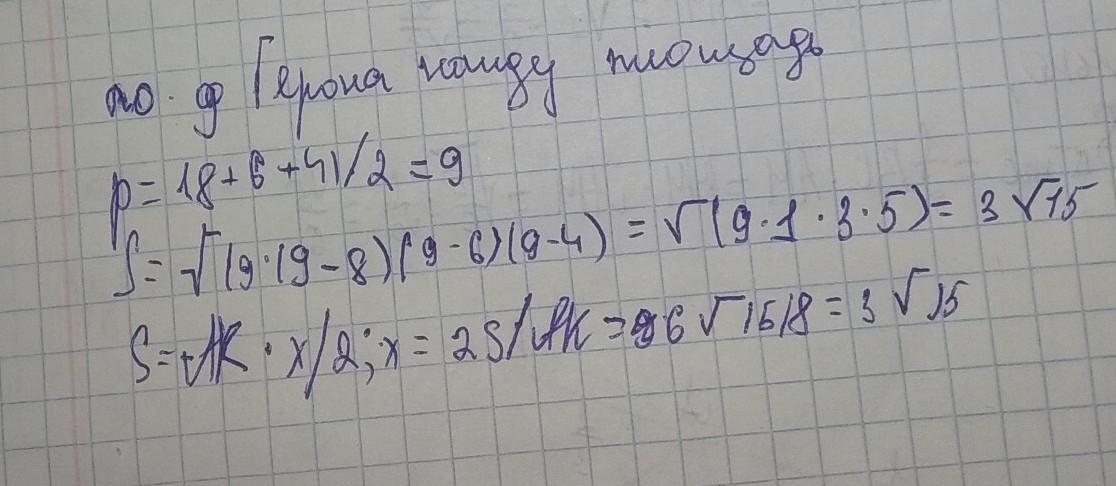 по. ф Герона найду площадь
p = (8+6+4)/2 = 9
S = √(9·(9-8)(9-6)(9-4) = √(9·1·3·5) = 3√15
S = AK · x/2; x = 2S/AK = 6√15/8 = 3√15